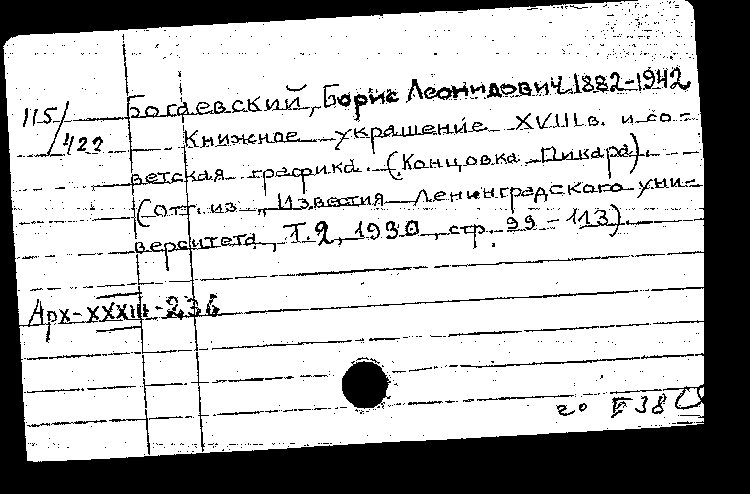 115/422
Богаевский, Борис Леонидович 1882-1942
Книжное украшение XVIII в. и со-
ветская графика. (Концовка Пикара).
(Отт. из „Известия Ленинградского уни-
верситета, Т. 2, 1930, стр. 99-113).
Арх-XXXIII-236
20 38